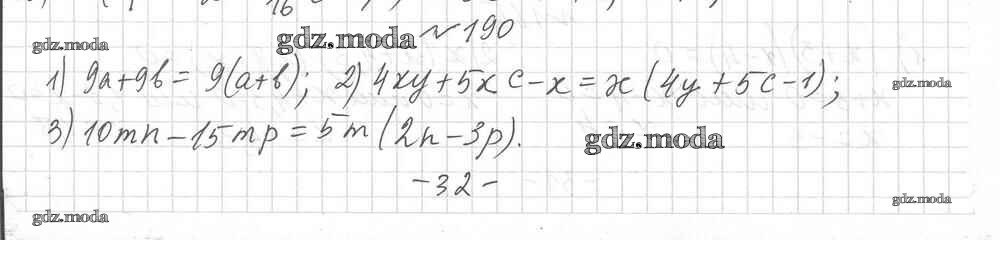 16
gdz.moda gdz.moda № 190
1) 9a+9b = 9(a+b); 2) 4xy+5xc-x = x(4y+5c-1); gdz.moda
3) 10mn-15mp = 5m(2n-3p). gdz.moda
-32-
gdz.moda gdz.moda